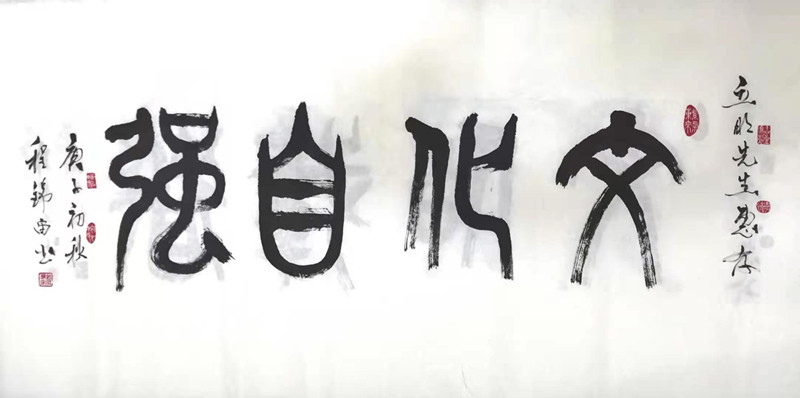 立明先生惠存
文化自强
庚子初秋
程錦